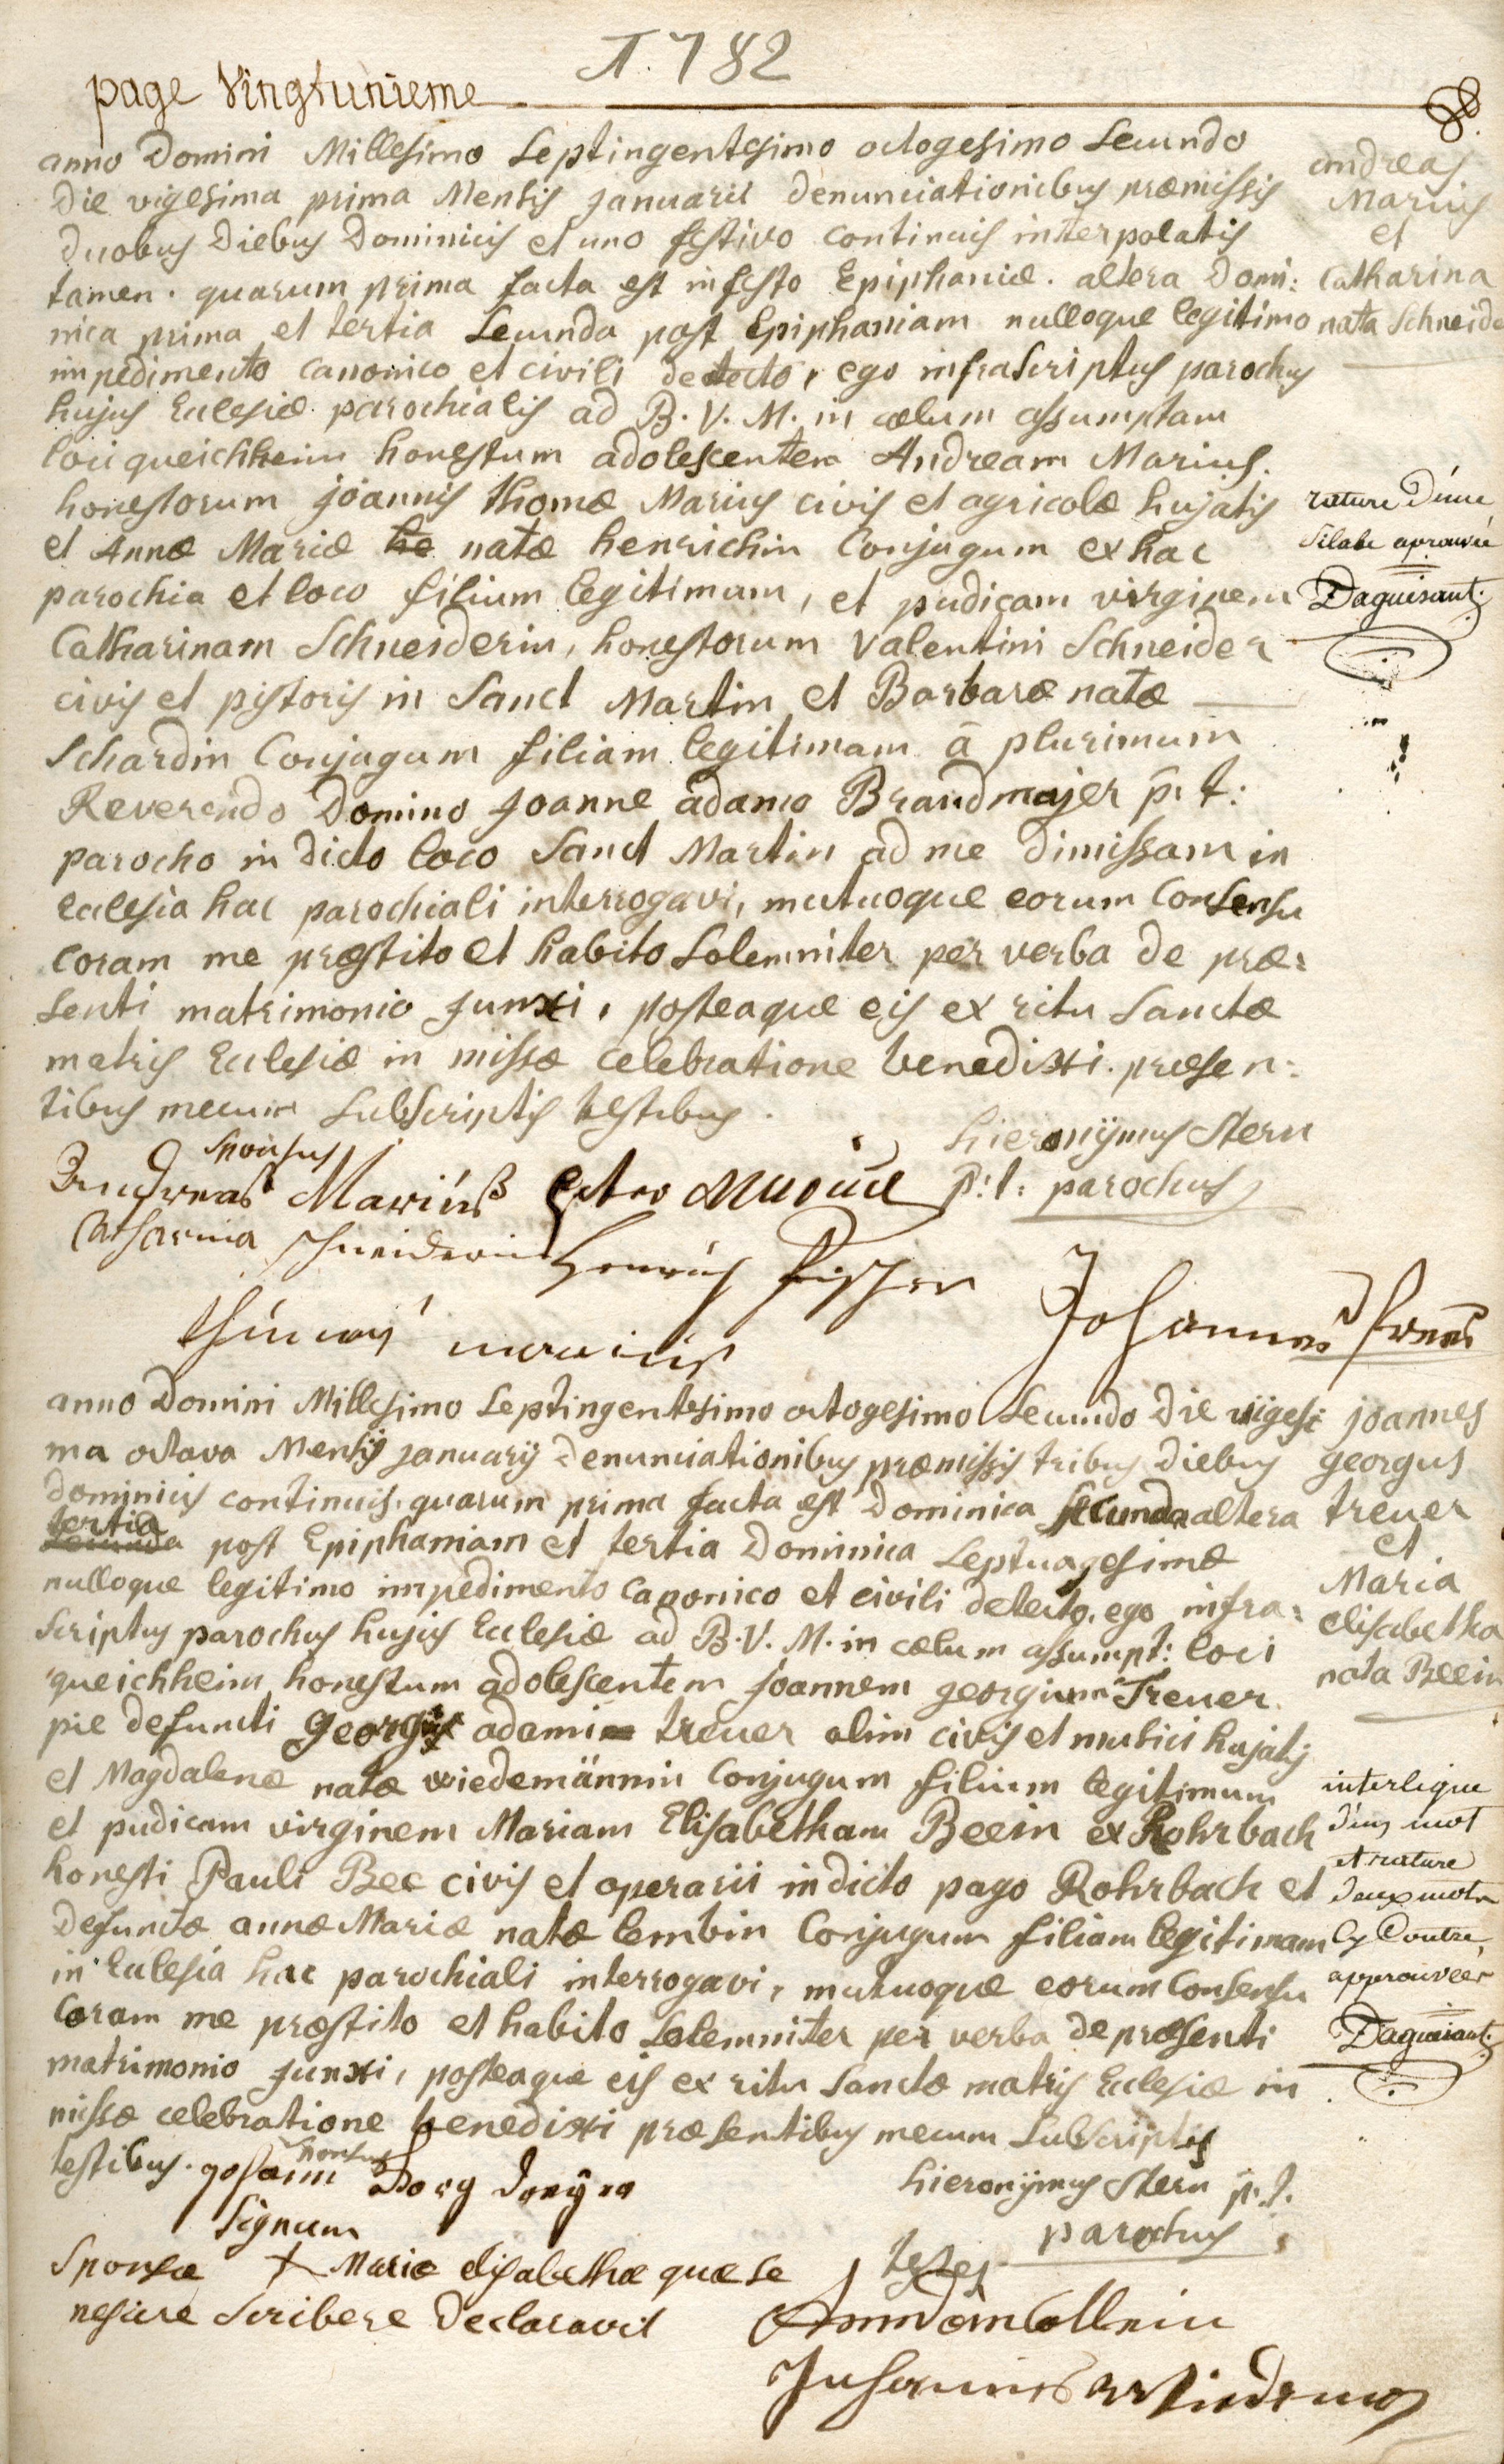 1782
page vingtunieme
anno Domini Millesimo Septingentesimo octogesimo Secundo
Die vigesima prima Mensis januarii denunciationibus præmissis
duobus Diebus Dominicis et uno festivo continuis interpolatis
tamen. quarum prima facta est in festo Epiphaniæ. altera Domi:
nica prima et tertia Secunda post Epiphaniam nulloque legitimo
impedimento canonico et civili detecto, ego infrascriptus parochus
hujus Ecclesiæ parochialis ad B. V. M. in cælum assumptam
loci queichheim honestum adolescentem Andream Marius.
honestorum joannis thomæ Marius civis et agricolæ hujatis
et Annæ Mariæ he natæ henrichin Conjugum ex hac
parochia et loco filium legitimum, et pudicam virginem
Catharinam Schneiderin, honestorum Valentini Schneider
civis et pistoris in Sanct Martin et Barbaræ natæ
Schardin Conjugum filiam legitimam â plurimum
Reverendo Domino Joanne adamo Brandmajer p. t:
parocho in dicto loco Sanct Martin ad me dimissam in
ecclesia hac parochiali interrogavi, mutuoque eorum Consensu
coram me præstito et habito Solemniter per verba de præ:
senti matrimonio junxi, posteaque eis ex ritu Sanctæ
matris Ecclesiæ in missæ celebratione benedixi. præsen:
tibus mecum subscriptis testibus.
andreas
Marius
et
Catharina
nata Schneide
rature d'une
silabe aprouvée
Daguisant
hieronÿmus Stern
p: t: parochus
sponsus
Andreas Mariuß
Catharina schneiderin
Henrich fischer
marius
Johannes
anno Domini Millesimo Septingentesimo octogesimo Secundo Die vigesi
ma octava Mensis januarij denunciationibus præmissis tribus Diebus
dominicis continuis. quarum prima facta est Dominica secunda altera
tertia
secunda post Epiphaniam et tertia Dominica Septuagesimæ
nulloque legitimo impedimento canonico et civili detecto. ego infra:
scriptus parochus hujus Ecclesiæ ad B. V. M. in cælum assumpt: loci
queichheim honestum adolescentem joannem georgium Treuer
pie defuncti Georgij adami treuer olim civis et hujatis
et Magdalenæ natæ wiedemännin Conjugum filium legitimum
et pudicam virginem Mariam Elisabetham Beein ex Rohrbach
honesti Pauli Bee civis et operarii in dicto pago Rohrbach et
defunctæ annæ Mariæ natæ lembin Conjugum filiam legitimam
in Ecclesia hac parochiali interrogavi, mutuoque eorum Consensu
Coram me præstito et habito Solemniter per verba de præsenti
matrimonio junxi, posteaque eis ex ritu Sanctæ matris Ecclesiæ in
missæ celebratione benedixi præsentibus mecum subscriptis
testibus.
joannes
georgus
treuer
et
Maria
elisabetha
nata Beein
interligne
d'un mot
et rature
deux mots
Cy Contre
approuvées
Daguisant
sponsus
hieronijmus Stern p. t.
parochus
Signum
Sponsæ + Mariæ elisabethæ quæ se
nescire scribere declaravit
testes